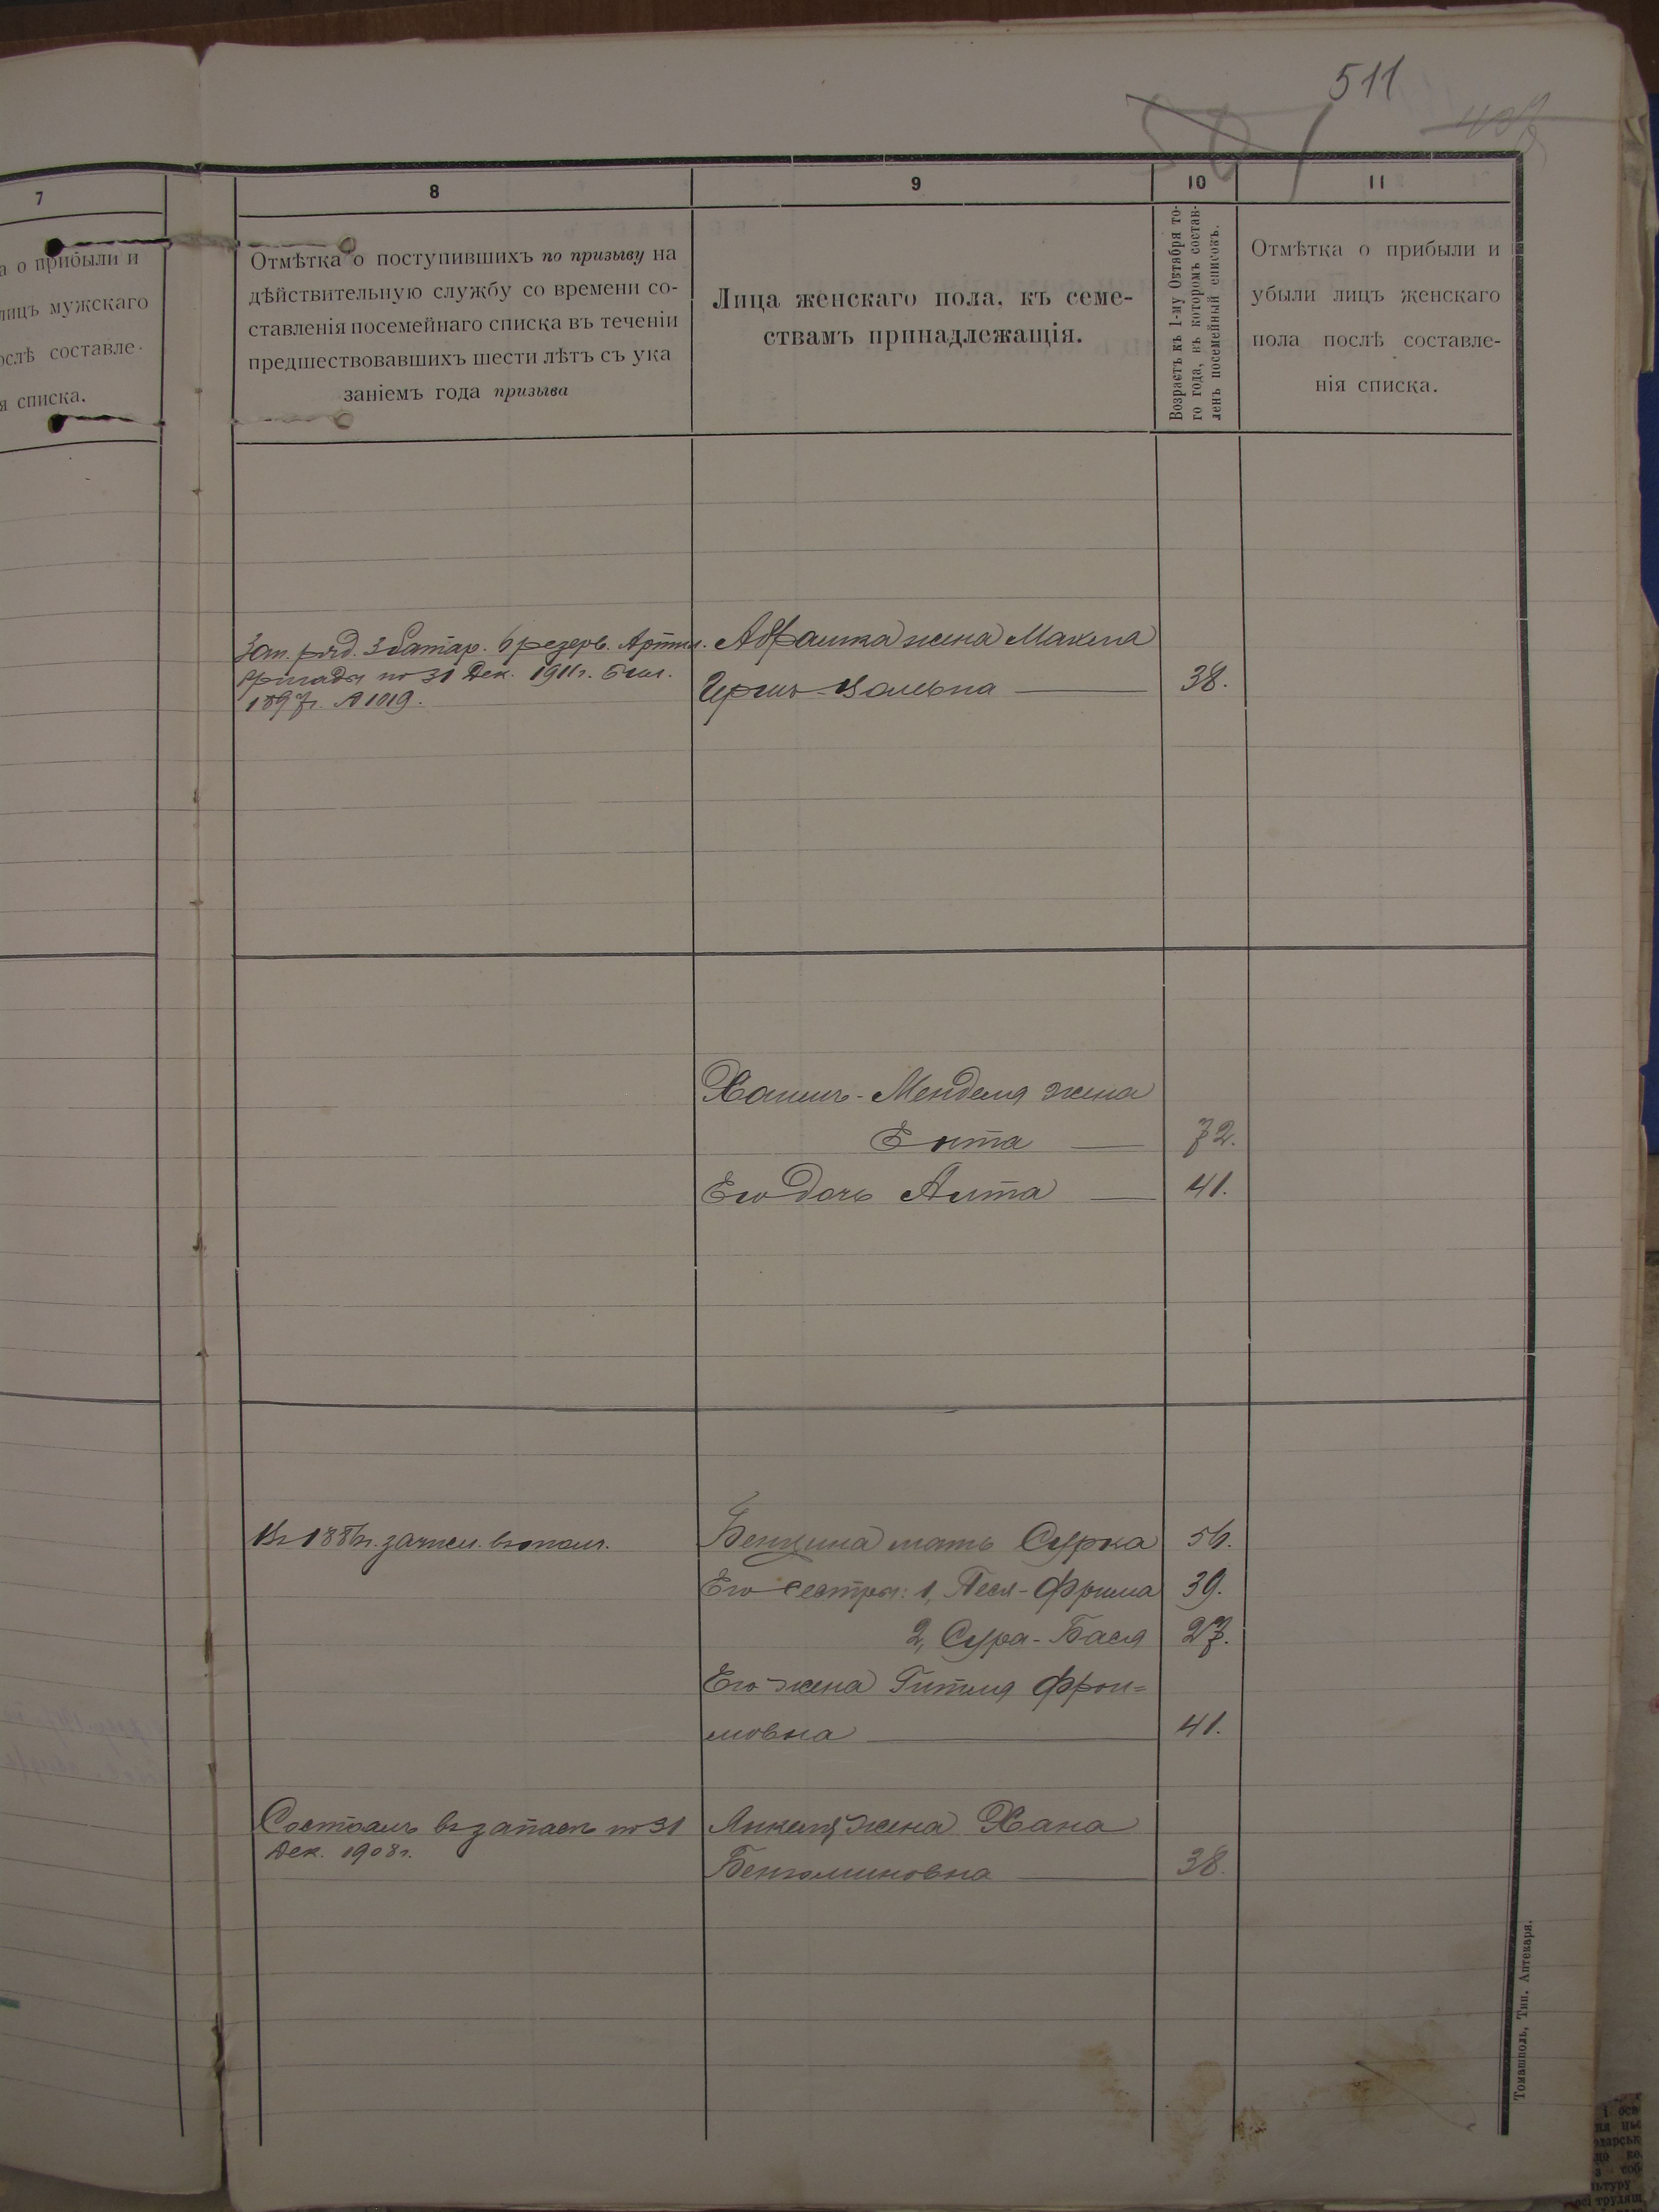 511
7
8
9
10
11
а о прибыли и
лицъ мужскаго
ослѣ составле-
я списка.
Отмѣтка о поступившихъ по призыву на
дѣйствительную службу со времени со-
ставленія посемейнаго списка въ теченіи
предшествовавшихъ шести лѣтъ съ ука
заніемъ года призыва
Лица женскаго пола, къ семе-
ствамъ принадлежащія.
Возрастъ къ 1-му Октября то-
го года, въ которомъ состав-
ленъ посемейный списокъ.
Отмѣтка о прибыли и
убыли лицъ женскаго
пола послѣ составле-
нія списка.
Зап. ряд. 3 батар. 6 резерв. Артил.
бригады по 31 Дек. 1911г. Бил.
1897г. №1019.
Абрашка жена Махля
Гершъ-
38.
Хаимъ-Менделя жена
Ента 72.
Его дочь Алта 41.
Въ 1886г. зачисл. въ ополч.
Бенциона мать Сурка 56.
Его сестры: 1, Песя-Фрима 39.
2, Сура-Бася 27.
Его жена Гитля Фрои=
мовна 41.
Состоялъ въ запасѣ по 31
Дек. 1908г.
Янкеля жена Хана
Беньминовна 38.
Томашполь, Тип. Аптекаря.